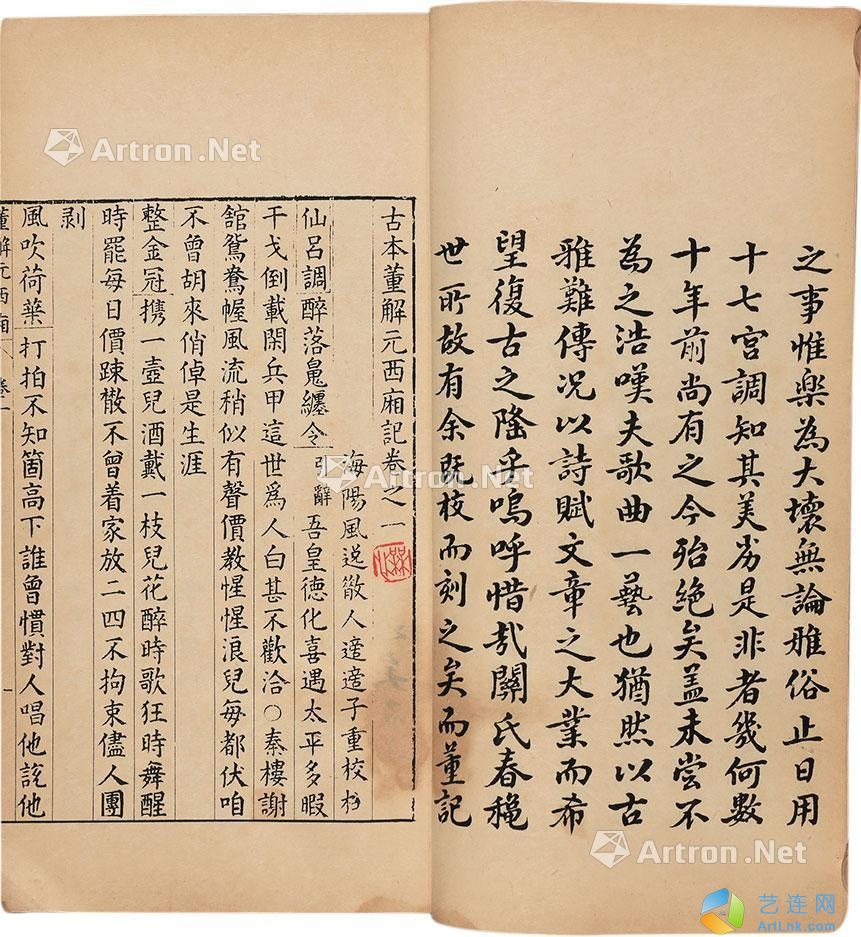 之事惟樂為大壞無論雅俗止日用
十七宮調知其美劣是非者幾何數
十年前尚有之今殆絕矣蓋未嘗不
為之浩嘆夫歌曲一藝也猶然以古
雅難傳况以詩賦文章之大業而希
望復古之隆乎嗚呼惜哉關氏春
世所故有余既校而刻之矣而董記
古本董解元西廂記卷之一
海陽風逸散人適適子重校梓
仙呂調醉落魄纏令引辭吾皇德化喜遇太平多暇
干戈倒載閑兵甲這世為人白甚不歡洽〇秦樓謝
舘鴛鴦幄風流稍似有聲價教惺惺浪兒每都伏咱
不曾胡來俏倬是生涯
整金冠携一壺兒酒戴一枝兒花醉時歌狂時舞醒
時罷每日價踈散不曾着家放二四不拘束儘人團
剥
風吹荷葉打拍不知箇高下誰曾慣對人唱他說他
董解元西廂 卷一 一
Artron.Net
Artron.Net
Artron.Net
艺连网
ArtLnk.com